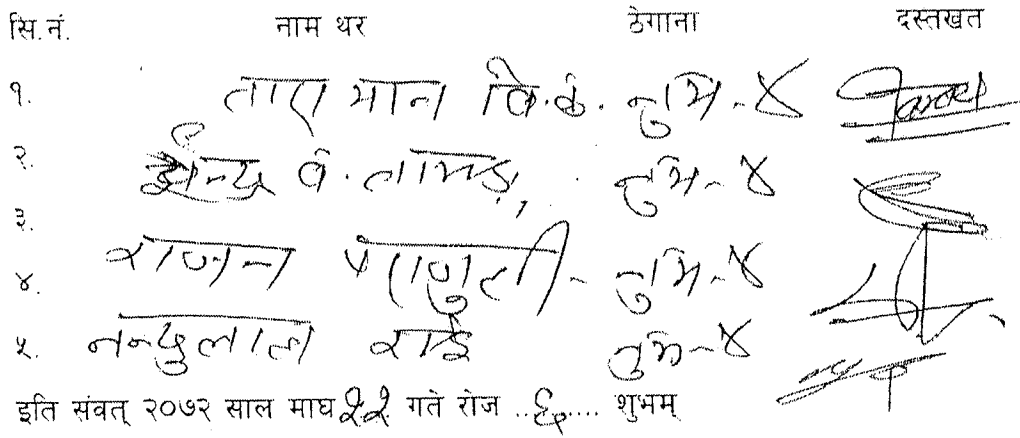 सि.नं. नाम थर ठेगाना दस्तखत
१. तारा मान वि.क. नुभि-४
२. ईन्द्र व. तामाङ, नुभि-४
३.
राजन पराजुली- नुभि-४
४.
५. नन्दुलाल राई नुभि-४
इति संवत् २०७२ साल माघ २२ गते रोज ..६.... शुभम्